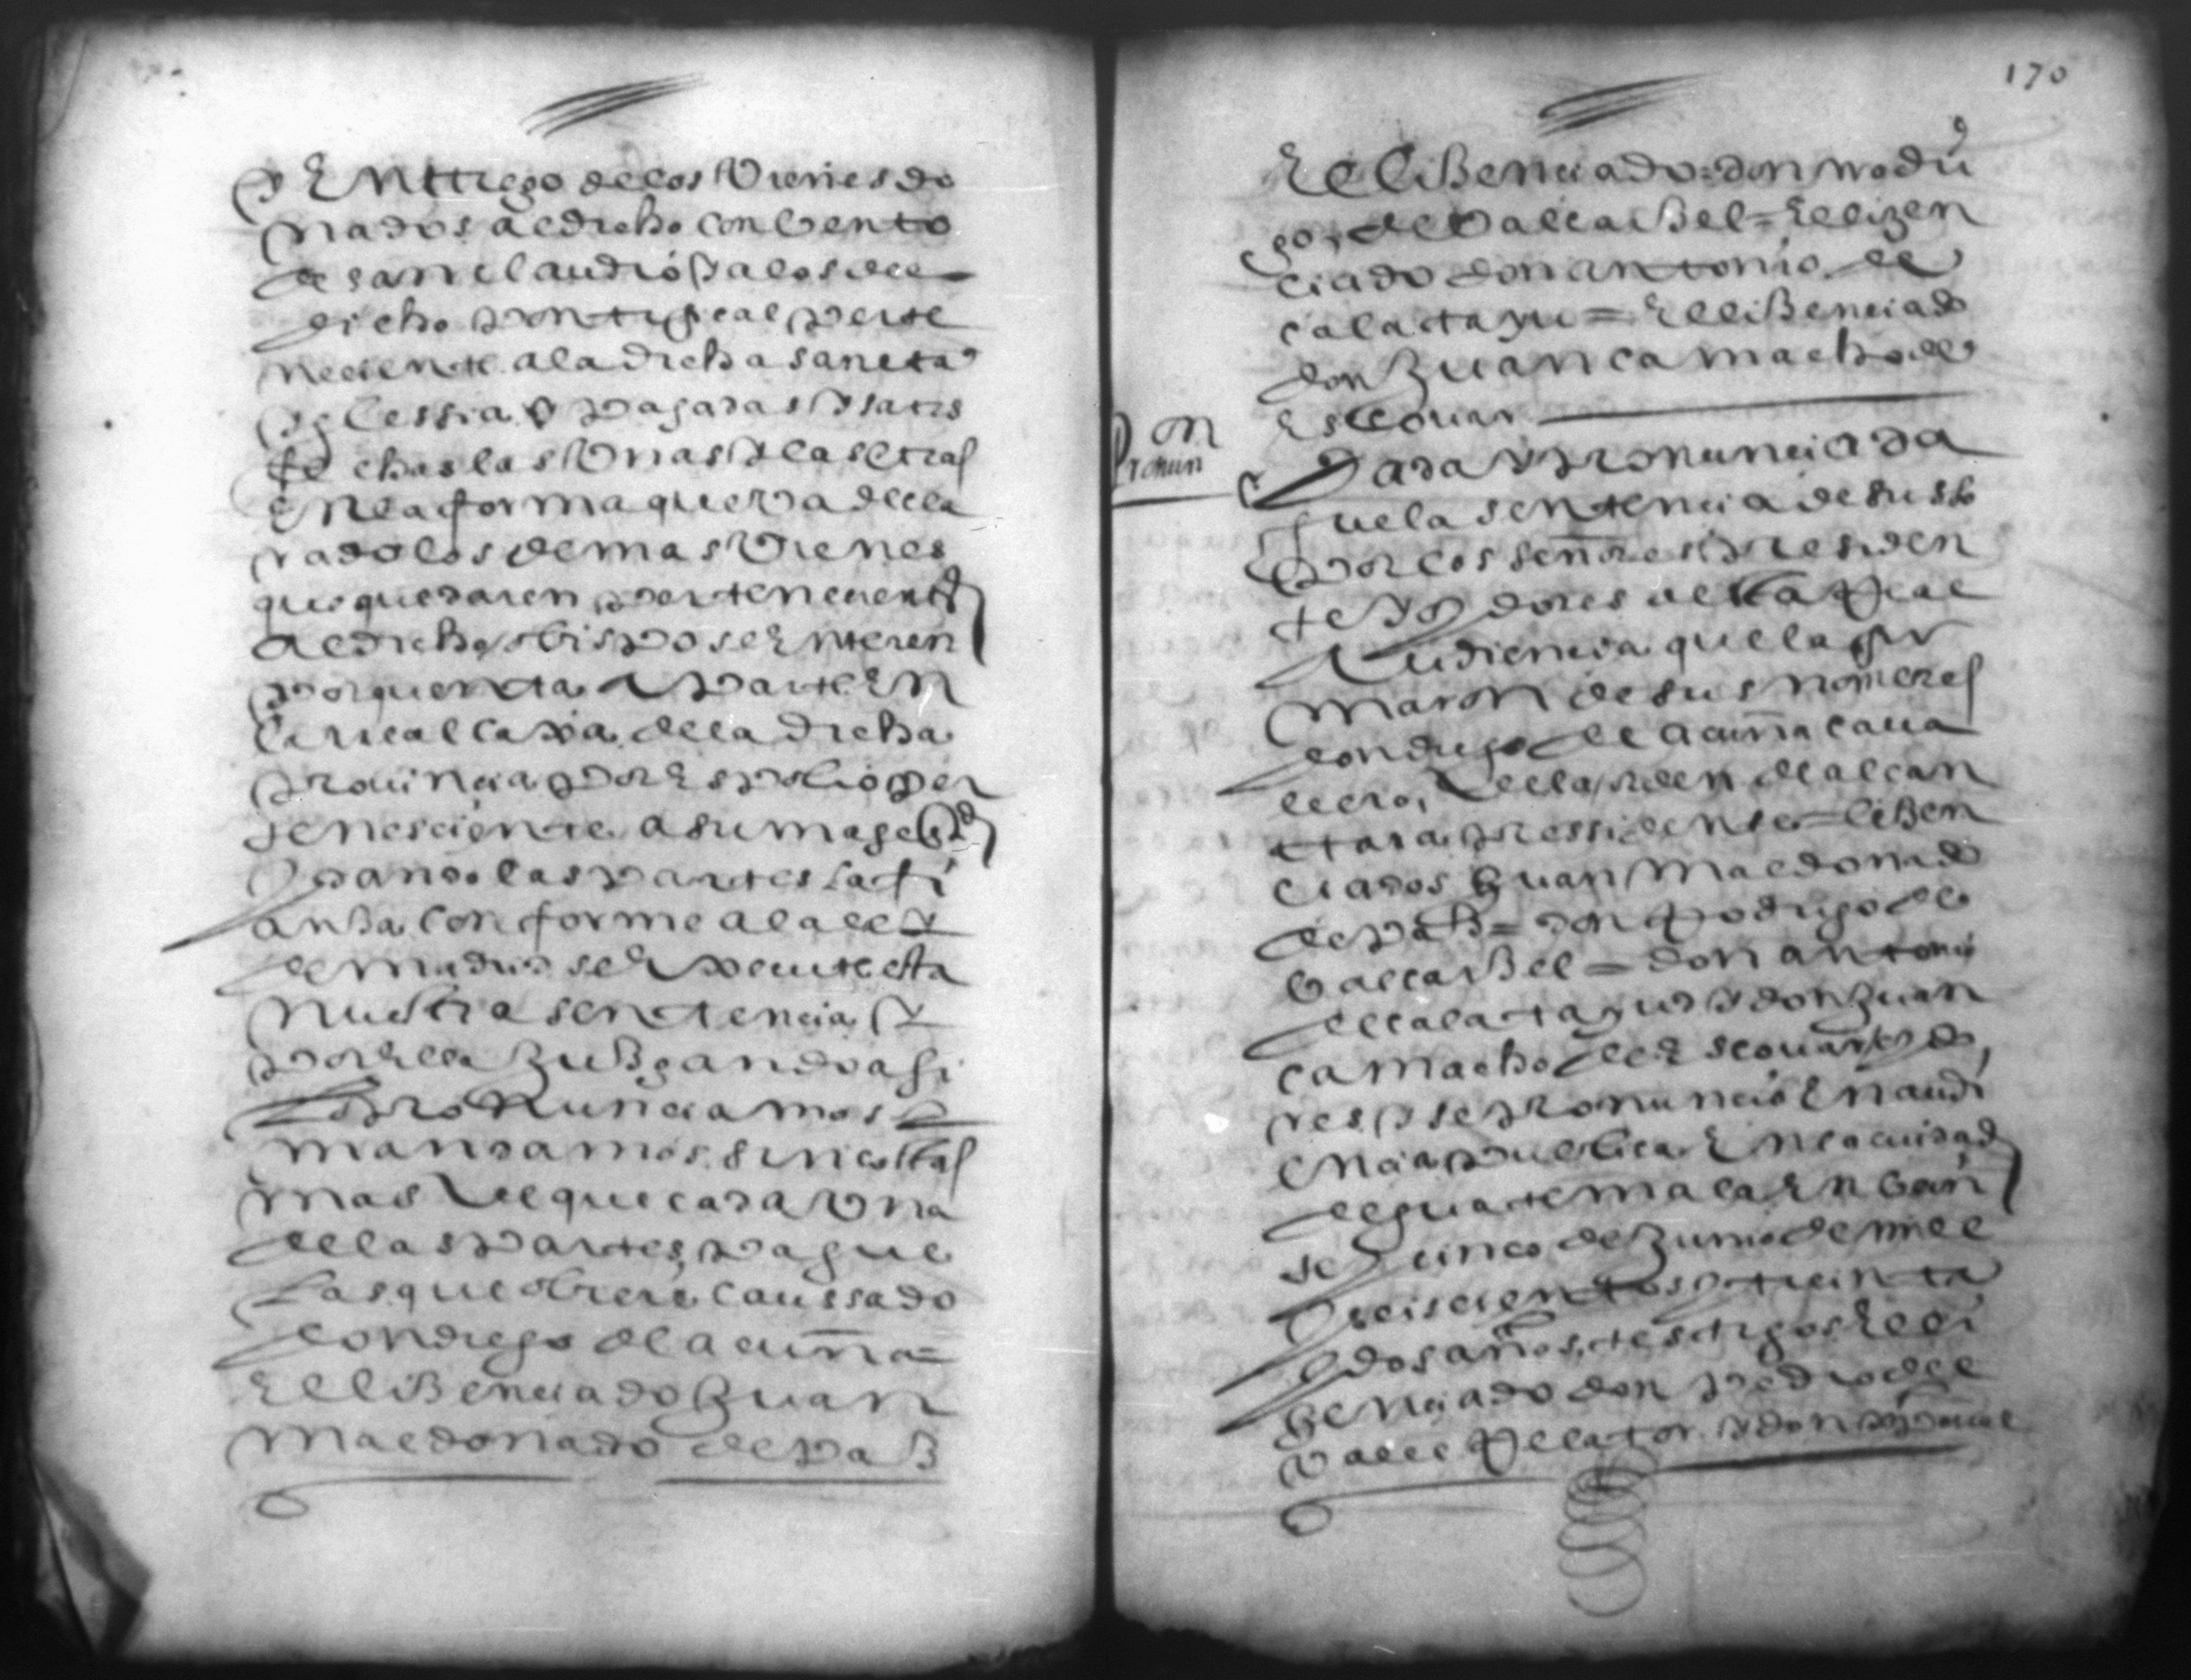 y entrego de los vienes do
nados al dicho conbento
de san claudio y a los del
dicho pontifical perte
neciente a la dicha sancta
yglessia y pagadas y satis
fechas las unas y las otras
en la forma que va decla
rado los demas vienes
que quedaren pertenecientes
al dicho obispo se enteren
por quenta a parte en
la real caxa de la dicha
provincia por espolio per
tenesciente a su magestad
y dando las partes la fi
ansa conforme a la ley
de madrid se execute esta
nuestra sentencia y
por ella juzgando asi
lo pronunciamos y
mandamos sin costas
mas de que cada una
de las partes pague
las que obiere caussado
don diego de acuña =
el lisenciado Juan
maldonado de paz
170
el lisenciado don rodri
go de valcarsel = el lizen
ciado don antonio de
calatayu = el lisenciado
don Juan camacho de
escovar
Pron
nun
Dada y pronunciada
fue la sentencia de suso
por los señores presiden
te y oydores de la real
audiencia que la fir
maron de sus nombres
don diego de acuña cava
llero de la orden de alcan
tara pressidente = lisen
ciados Juan maldonado
de paz = don rodrigo de
valcarsel = don antonio
de calatayud y don Juan
camacho de escovar oydo
res y se pronuncio en audi
encia publica en la ciudad
de guatemala en bein
te y cinco de junio de mill
y seiscientos y treinta
y dos años, testigos el li
senciado don pedro del
valle relator y don